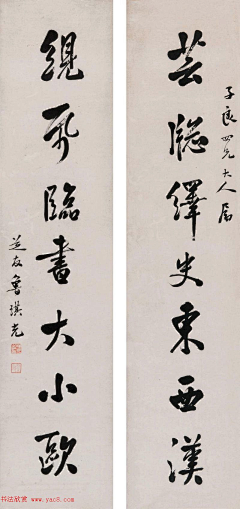 子良四兄大人屬
芸牕繹史東西漢
臨書大小歐
芝友魯琪光
书法欣赏 www.yac8.com